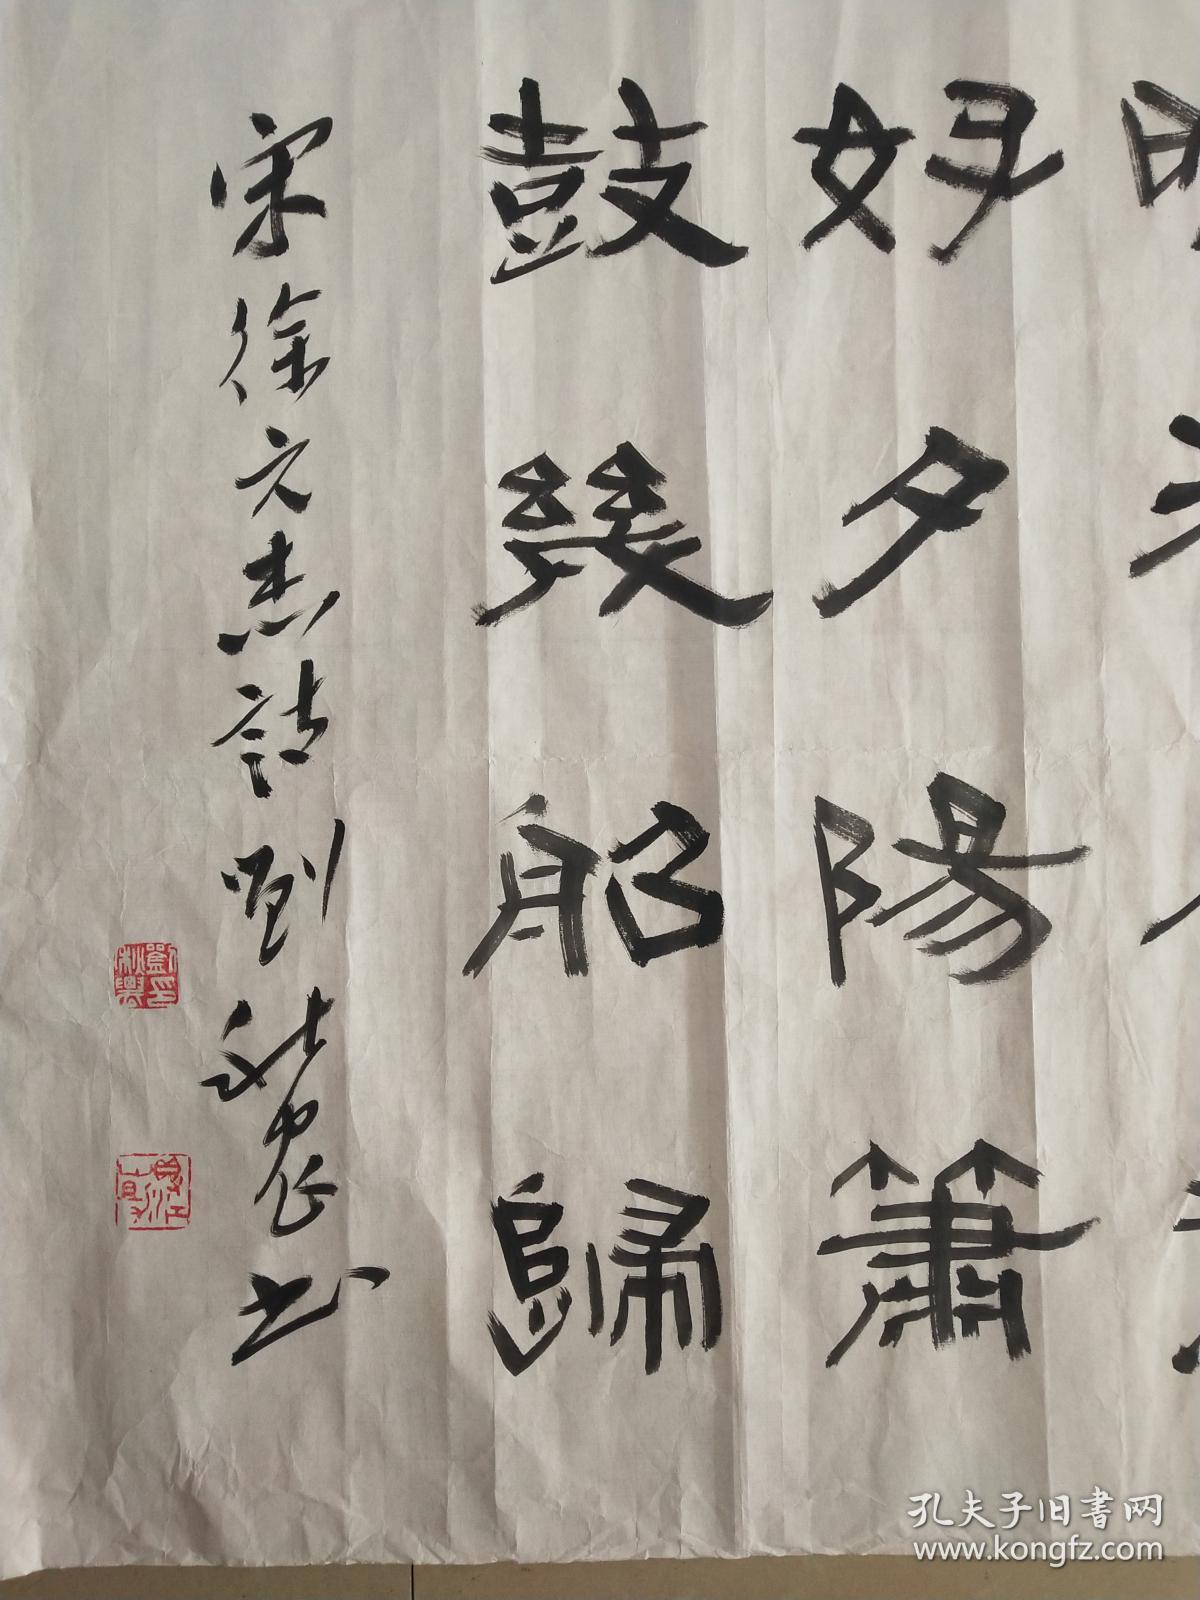 好夕陽簫
鼓幾船歸
宋徐元杰詩劉秋農書
孔夫子旧書网
www.kongfz.com